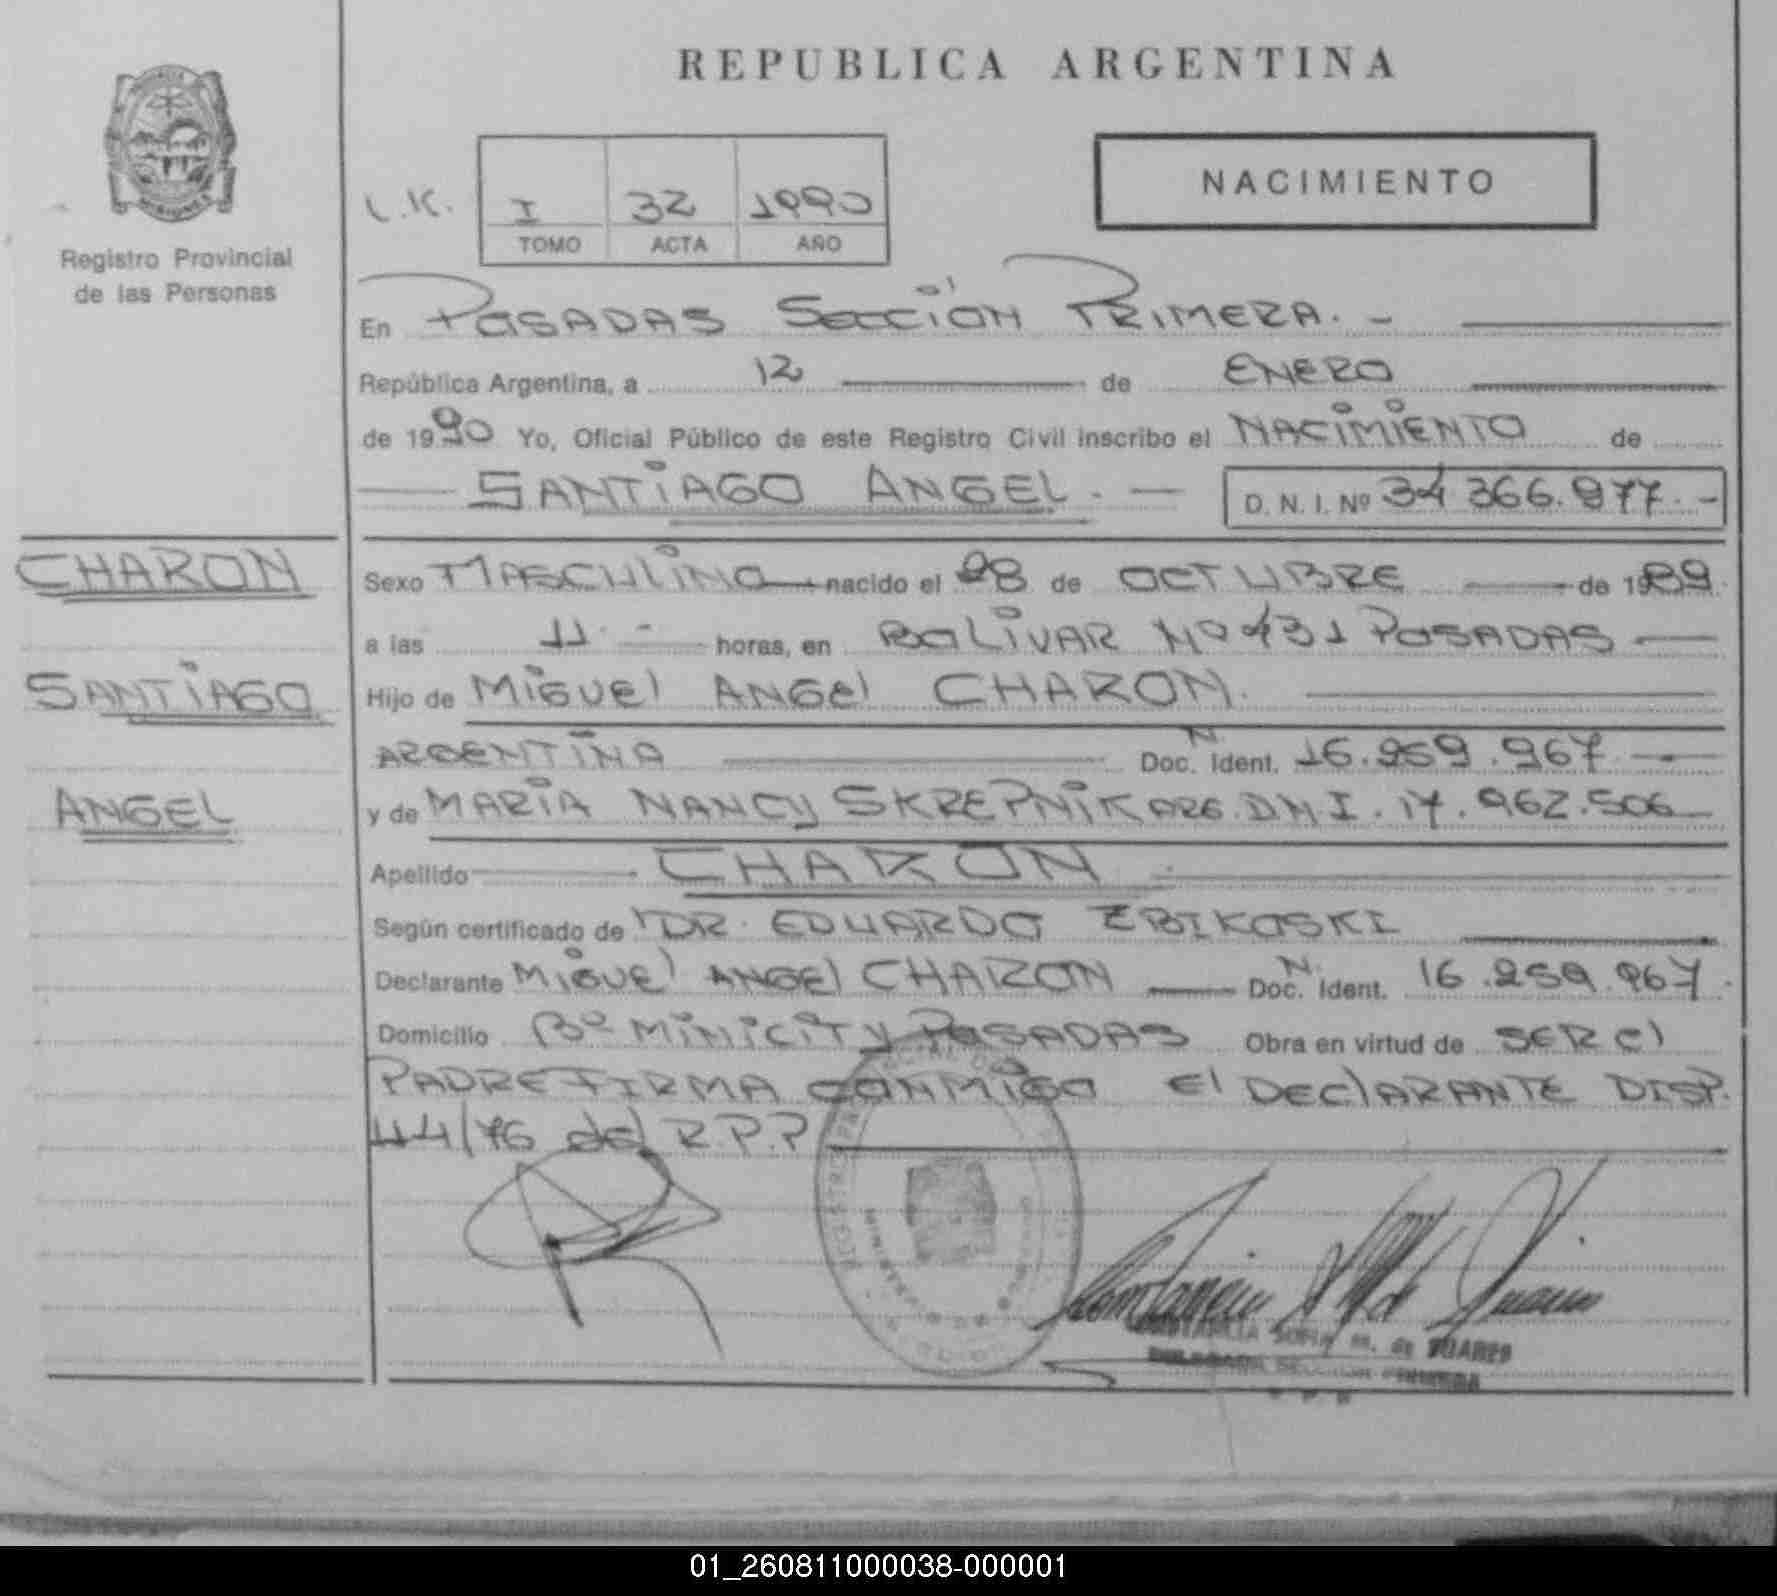 REPUBLICA ARGENTINA
MISIONES
Registro Provincial
de las Personas
L.K.
I 32 1990
TOMO ACTA AÑO
NACIMIENTO
En POSADAS SECCIÓN PRIMERA. -
República Argentina, a 12 de ENERO
de 1990 Yo, Oficial Público de este Registro Civil inscribo el NACIMIENTO de
SANTIAGO ANGEL. D. N. I. Nº 34 366.977. -
CHARON
SANTIAGO
ANGEL
Sexo MASCULINO nacido el 28 de OCTUBRE de 1989.
a las 11. - horas, en BOLIVAR Nº 431 POSADAS
Hijo de MIGUEl ANGEl CHARON.
ARGENTINA Doc. Ident. N 16.959.967
y de MARIA NANCY SKREPNIK ARG. DNI. 17.962.506
Apellido CHARON
Según certificado de DR. EDUARDO ZBIKOSKI
Declarante MIGUEl ANGEl CHARON Doc. Ident. N. 16.959.967.
Domicilio Bº MINICITY POSADAS Obra en virtud de SER El
PADRE FIRMA CONMIGO El DEClARANTE DISP.
44/76 del R.P.P
CONSTANCIA SOFIA M. de SUARES
DELEGADA SECCION PRIMERA
R. P. P.
01_260811000038-000001